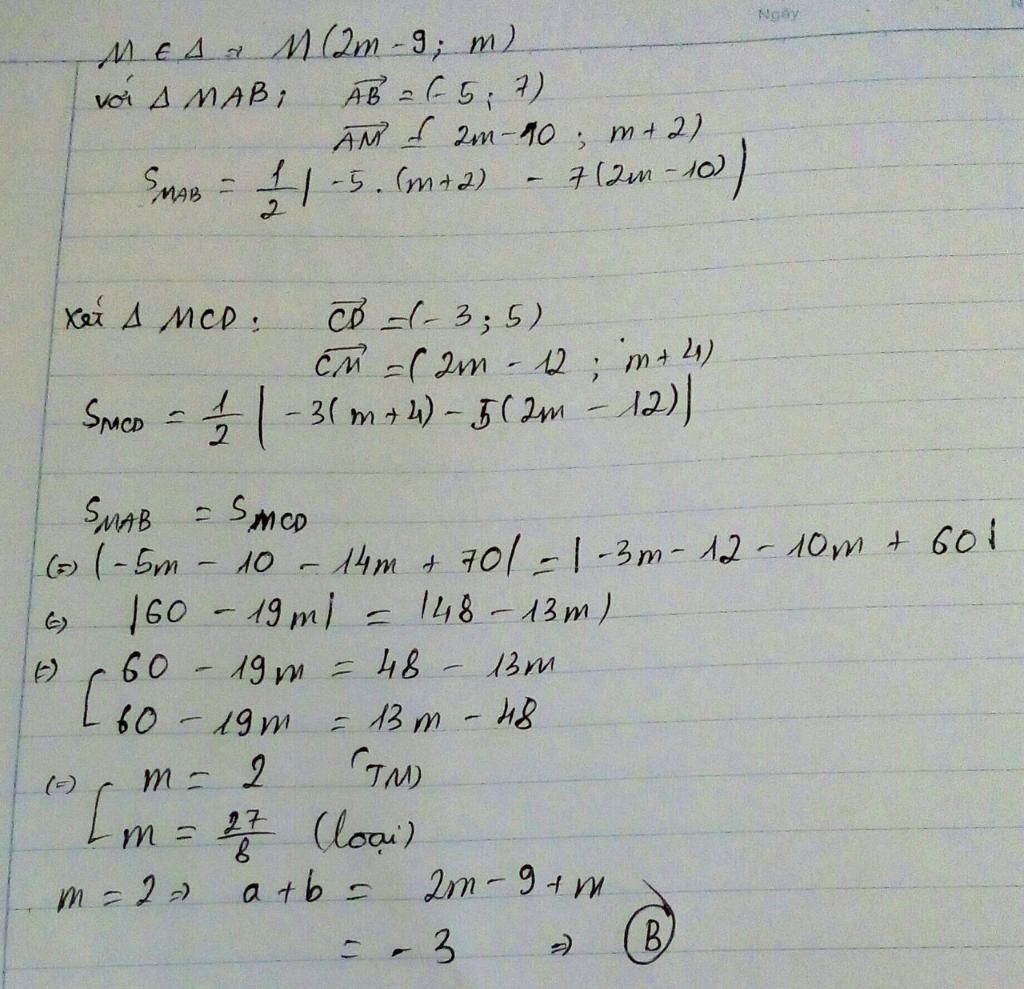 Ngày
M ∈ Δ → M(2m - 9; m)
với Δ MAB: AB = (-5; 7)
AM = (2m - 10; m + 2)
S_MAB = 1/2 | -5 . (m+2) - 7(2m - 10) |
Xét Δ MCD: CD = (-3; 5)
CM = (2m - 12; m + 4)
S_MCD = 1/2 | -3(m+4) - 5(2m - 12) |
S_MAB = S_MCD
(=) |-5m - 10 - 14m + 70| = |-3m - 12 - 10m + 60|
(=) |60 - 19m| = |48 - 13m|
(=) [ 60 - 19m = 48 - 13m
60 - 19m = 13m - 48
(=) [ m = 2 (TM)
m = 27/8 (loại)
m = 2 => a + b = 2m - 9 + m
= -3 => B